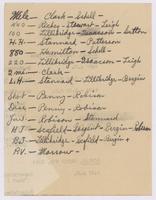 Mile - Clark - Schell -
440 - Rickes - Stewart - Leigh
100 - Lillibridge - Isaacson - Sutton
H.H. - Stannard - Patterson
880 - Hamilton - Schell -
220 - Lillibridge - Isaacson - Leigh
2 mi - Clark -
L.H. - Stannard - Lillibridge - Bergin
Shot - Penny - Robison
Disc - Penny - Robison
Jav - Robison - Stannard
H.J. - Scofield - Sargent - Bergin -
B.J. - Lillibridge - Scofield - Bergin +
P.V. - Massour -